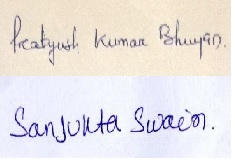 Pratyush Kumar Bhuyan.
Sanjukta Swain.